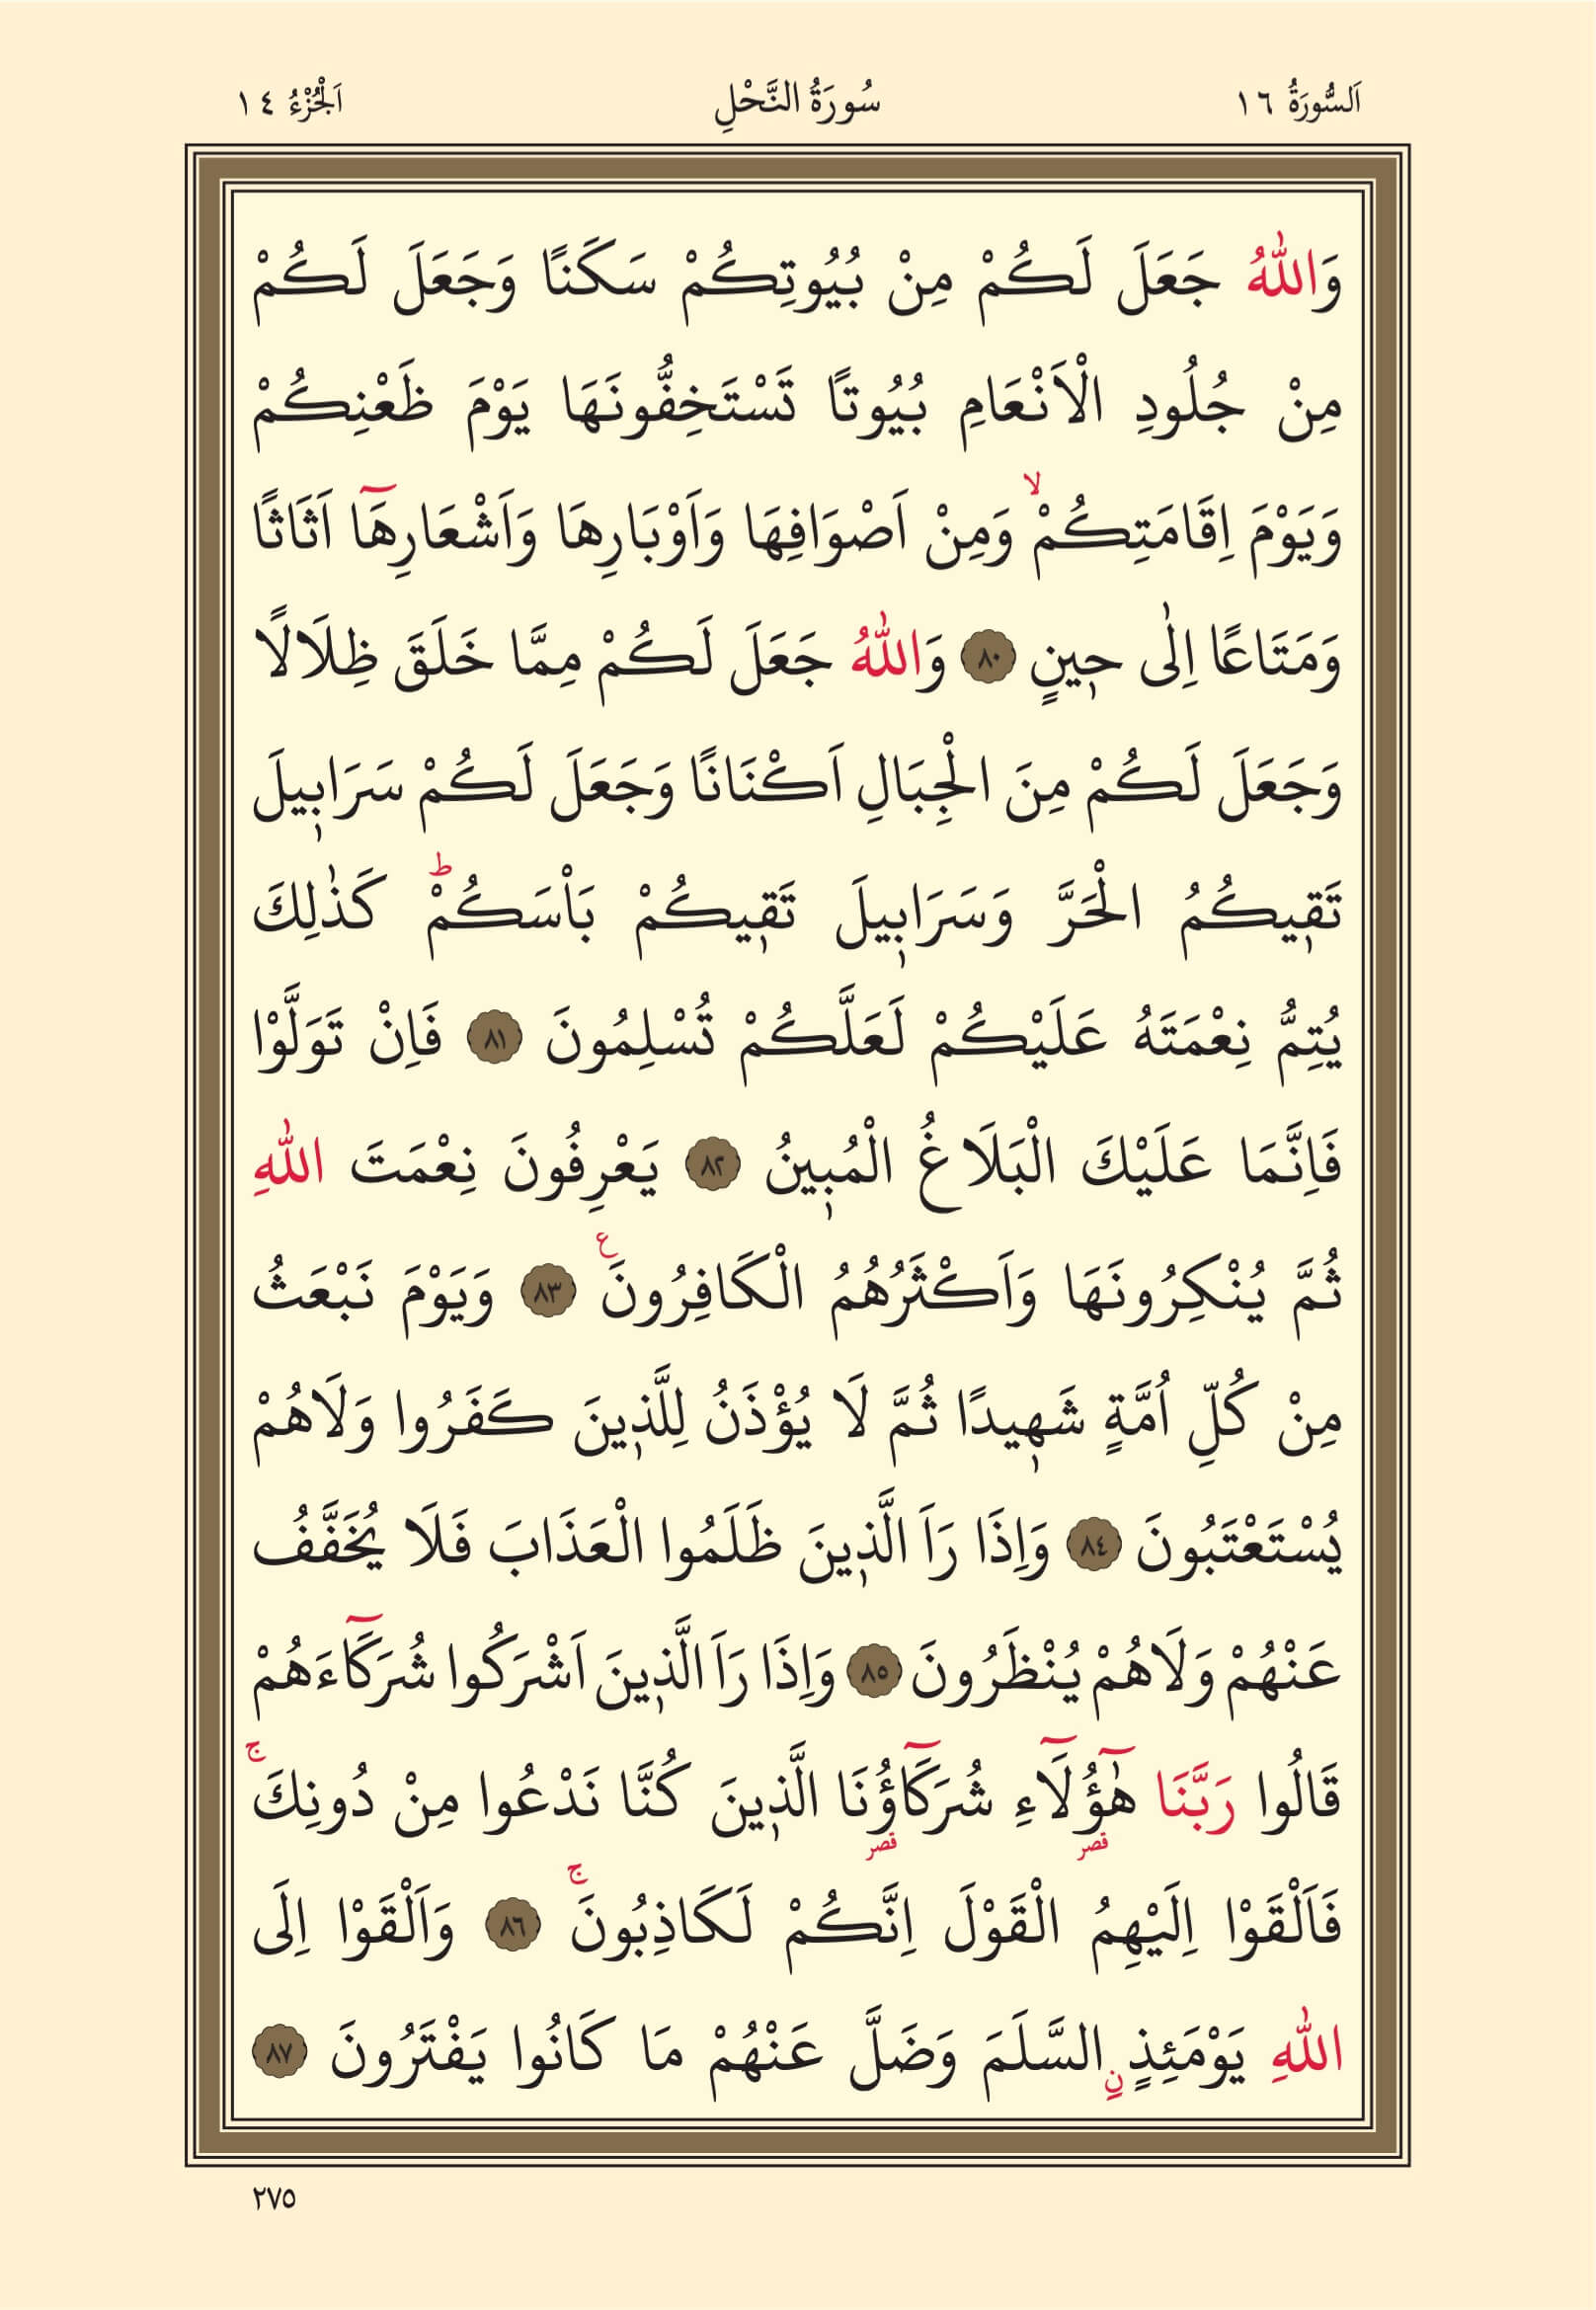 اَلسُّورَةُ ١٦ سُورَةُ النَّحْلِ اَلْجُزْءُ ١٤
وَاللّٰهُ جَعَلَ لَكُمْ مِنْ بُيُوتِكُمْ سَكَنًا وَجَعَلَ لَكُمْ
مِنْ جُلُودِ الْاَنْعَامِ بُيُوتًا تَسْتَخِفُّونَهَا يَوْمَ ظَعْنِكُمْ
وَيَوْمَ اِقَامَتِكُمْۙ وَمِنْ اَصْوَافِهَا وَاَوْبَارِهَا وَاَشْعَارِهَٓا اَثَاثًا
وَمَتَاعًا اِلٰى ح۪ينٍ ﴿٨٠﴾ وَاللّٰهُ جَعَلَ لَكُمْ مِمَّا خَلَقَ ظِلَالًا
وَجَعَلَ لَكُمْ مِنَ الْجِبَالِ اَكْنَانًا وَجَعَلَ لَكُمْ سَرَاب۪يلَ
تَق۪يكُمُ الْحَرَّ وَسَرَاب۪يلَ تَق۪يكُمْ بَاْسَكُمْۜ كَذٰلِكَ
يُتِمُّ نِعْمَتَهُ عَلَيْكُمْ لَعَلَّكُمْ تُسْلِمُونَ ﴿٨١﴾ فَاِنْ تَوَلَّوْا
فَاِنَّمَا عَلَيْكَ الْبَلَاغُ الْمُب۪ينُ ﴿٨٢﴾ يَعْرِفُونَ نِعْمَتَ اللّٰهِ
ثُمَّ يُنْكِرُونَهَا وَاَكْثَرُهُمُ الْكَافِرُونَ۟ ﴿٨٣﴾ وَيَوْمَ نَبْعَثُ
مِنْ كُلِّ اُمَّةٍ شَه۪يدًا ثُمَّ لَا يُؤْذَنُ لِلَّذ۪ينَ كَفَرُوا وَلَاهُمْ
يُسْتَعْتَبُونَ ﴿٨٤﴾ وَاِذَا رَاَ الَّذ۪ينَ ظَلَمُوا الْعَذَابَ فَلَا يُخَفَّفُ
عَنْهُمْ وَلَاهُمْ يُنْظَرُونَ ﴿٨٥﴾ وَاِذَا رَاَ الَّذ۪ينَ اَشْرَكُوا شُرَكَٓاءَهُمْ
قَالُوا رَبَّنَا هٰٓؤُ۬لَٓاءِ شُرَكَٓاؤُ۬نَا الَّذ۪ينَ كُنَّا نَدْعُوا مِنْ دُونِكَۚ
فَاَلْقَوْا اِلَيْهِمُ الْقَوْلَ اِنَّكُمْ لَكَاذِبُونَۚ ﴿٨٦﴾ وَاَلْقَوْا اِلَى
اللّٰهِ يَوْمَئِذٍۨ السَّلَمَ وَضَلَّ عَنْهُمْ مَا كَانُوا يَفْتَرُونَ ﴿٨٧﴾
٢٧٥